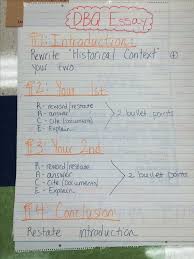 DBQ Essay
¶1: Introduction:
Rewrite "Historical Context" ⊕
your two.
¶2: Your 1st
R - reword/restate
A - answer
C - Cite (documents)
E - Explain
2 bullet points
¶3: Your 2nd
R - reword/restate
A - answer
C - Cite (documents)
E - Explain
2 bullet points
¶4: Conclusion
Restate introduction